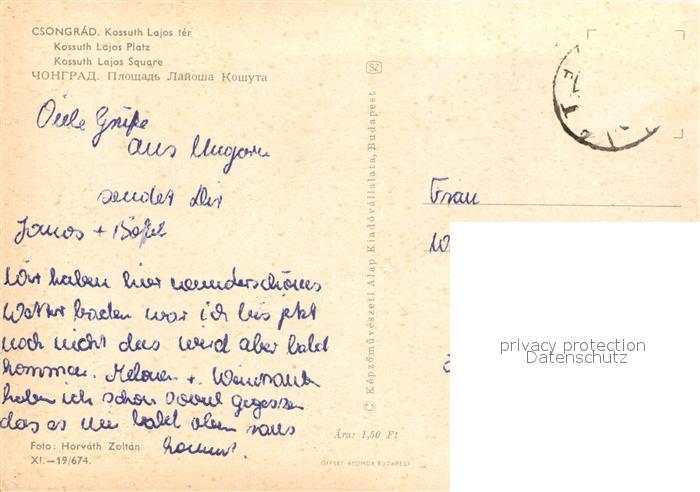 CSONGRÁD. Kossuth Lajos tér
Kossuth Lajos Platz
Kossuth Lajos Square
ЧОНГРАД. Площадь Лайоша Кошута
Viele Grüße
aus Ungarn
sendet Dir
Janos +
Wir haben hier wunderschönes
Wetter baden war ich bis jetzt
noch nicht das wird aber bald
kommen. Melonen + Weintrauben
haben ich schon soviel gegessen
das es mir bald oben raus
kommt.
Foto: Horváth Zoltán
XI.—19/674.
SZ
© Képzőművészeti Alap Kiadóvállalata, Budapest
Ára: 1,50 Ft
OFFSET-NYOMDA BUDAPEST
Frau
privacy protection
Datenschutz